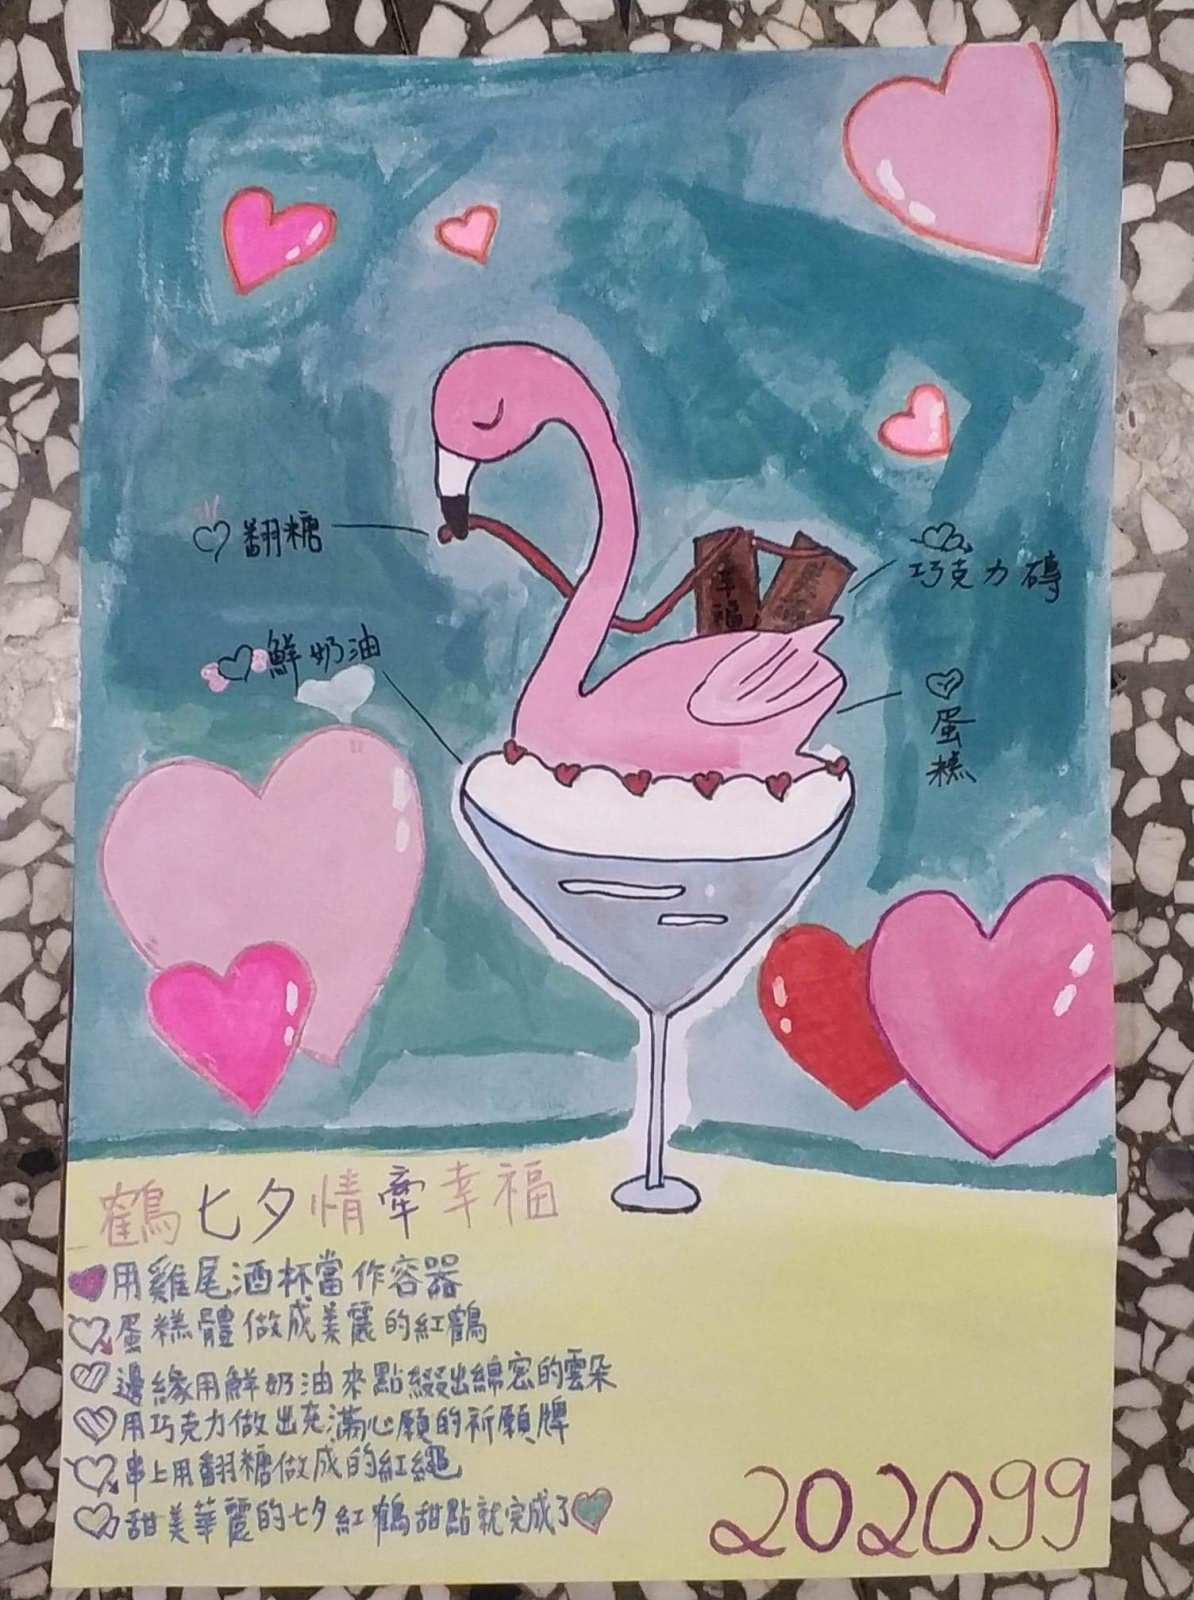 翻糖
巧克力磚
鮮奶油
蛋糕
幸福
鶴七夕情牽幸福
用雞尾酒杯當作容器
蛋糕體做成美麗的紅鶴
邊緣用鮮奶油來點綴出綿密的雲朵
用巧克力做出充滿心願的祈願牌
串上用翻糖做成的紅繩
甜美華麗的七夕紅鶴甜點就完成了
202099